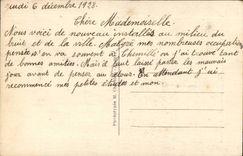 jeudi 6 décembre 1928.
Chère Mademoiselle
Nous voici de nouveau installés au milieu du
bruit et de la ville. Malgré mes nombreuses occupations
pensées s'en va souvent à Chemillé où j'ai trouvé tant
de bonnes amitiés. Mais il faut laisser passer les mauvais
jour avant de penser au retour. En attendant j'ai
recommencé mes petites études et mon.